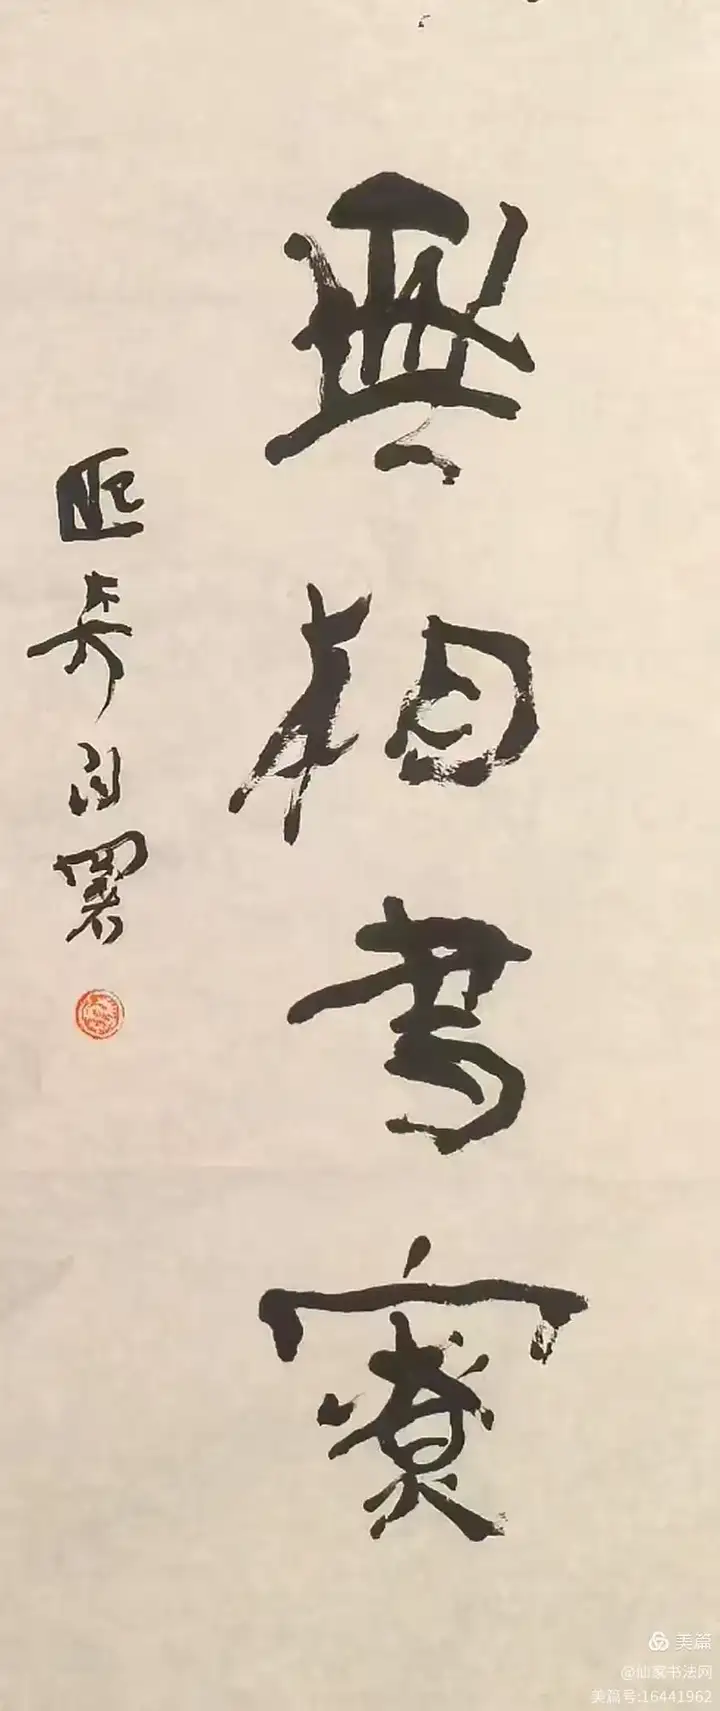 無相書寮
自署
美篇
@仙家书法网
美篇号:16441962